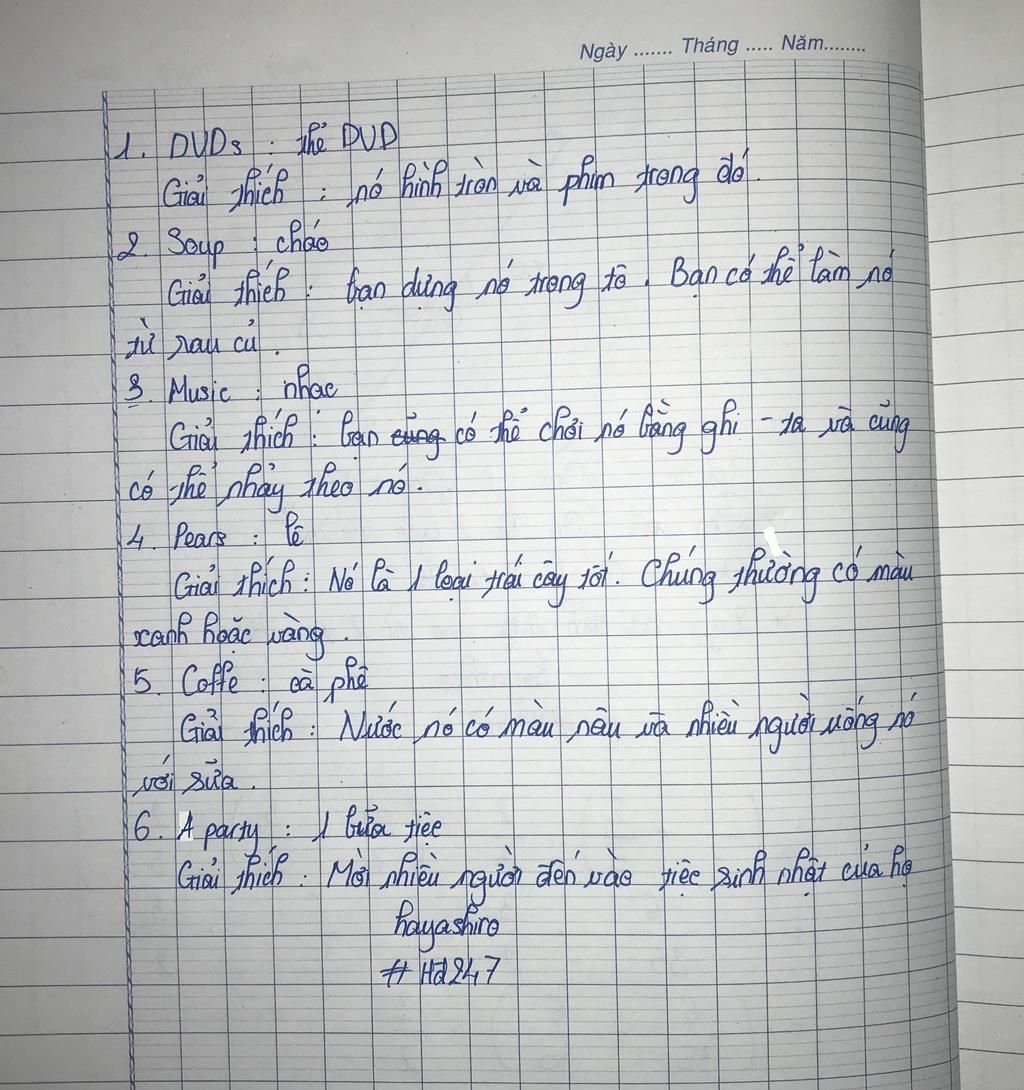 Ngày ....... Tháng ..... Năm........
1. DVDs : thẻ DVD
Giải thích : nó hình tròn và phim trong đó.
2. Soup : cháo
Giải thích : bạn dựng nó trong tô. Bạn có thể làm nó
từ rau củ.
3. Music : nhạc
Giải thích : bạn cũng có thể chơi nó bằng ghi - ta và cũng
có thể nhảy theo nó.
4. Pears : lê
Giải thích : Nó là 1 loại trái cây tốt. Chúng thường có màu
xanh hoặc vàng.
5. Coffe : cà phê
Giải thích : Nước nó có màu nâu và nhiều người uống nó
với sữa.
6. A party : 1 bữa tiệc
Giải thích : Mời nhiều người đến vào tiệc sinh nhật của họ
hayashiro
# Hd247